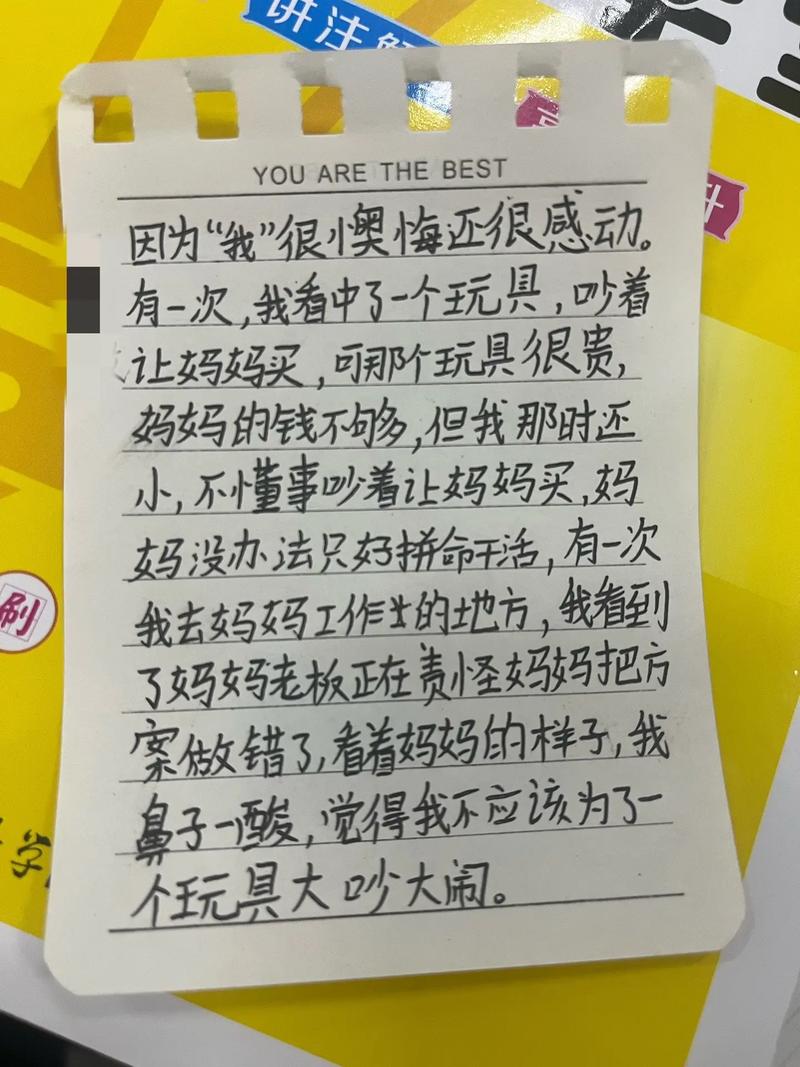 讲注解
YOU ARE THE BEST
因为“我”很懊悔还很感动。
有一次,我看中了一个玩具,吵着
让妈妈买,可那个玩具很贵,
妈妈的钱不够多,但我那时还
小,不懂事吵着让妈妈买,妈
妈没办法只好拼命干活,有一次
我去妈妈工作的地方,我看到
了妈妈老板正在责怪妈妈把方
案做错了,看着妈妈的样子,我
鼻子一酸,觉得我不应该为了一
个玩具大吵大闹。
刷
升
学